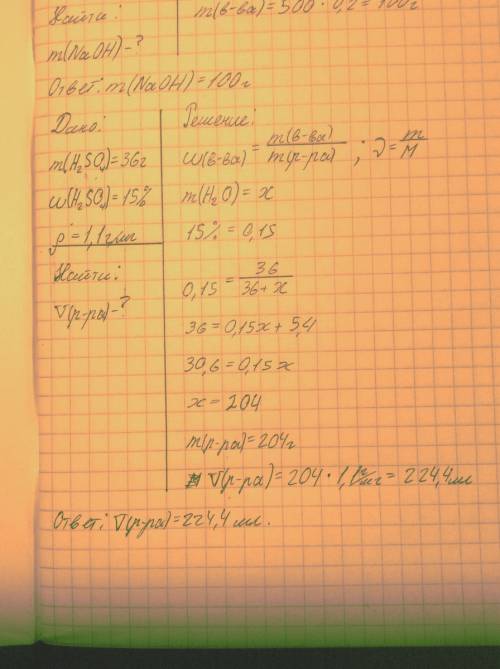 Найти:
m(в-ва)=500·0,2=100г
m(NaOH)-?
Ответ: m(NaOH)=100г
Дано:
m(H₂SO₄)=36г
ω(H₂SO₄)=15%
ρ=1,1г/мл
Найти:
V(р-ра)-?
Решение:
ω(в-ва)=m(в-ва)/m(р-ра); ν=m/M
m(H₂O)=x
15%=0,15
0,15=36/36+x
36=0,15x+5,4
30,6=0,15x
x=204
m(р-ра)=204г
V(р-ра)=204·1,1г/мл=224,4мл
Ответ: V(р-ра)=224,4мл.